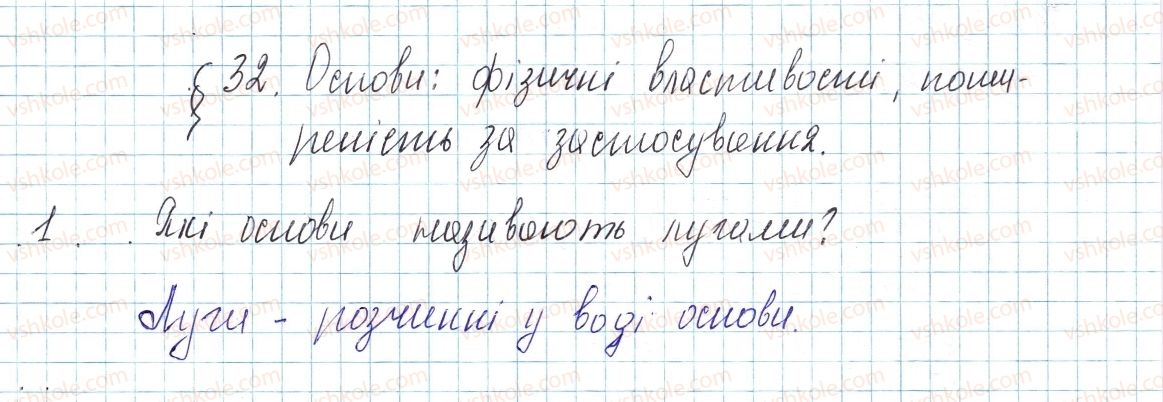 § 32. Основи: фізичні властивості, поши-
реність за застосування.
1. Які основи називають лугами?
Луги - розчинні у воді основи.